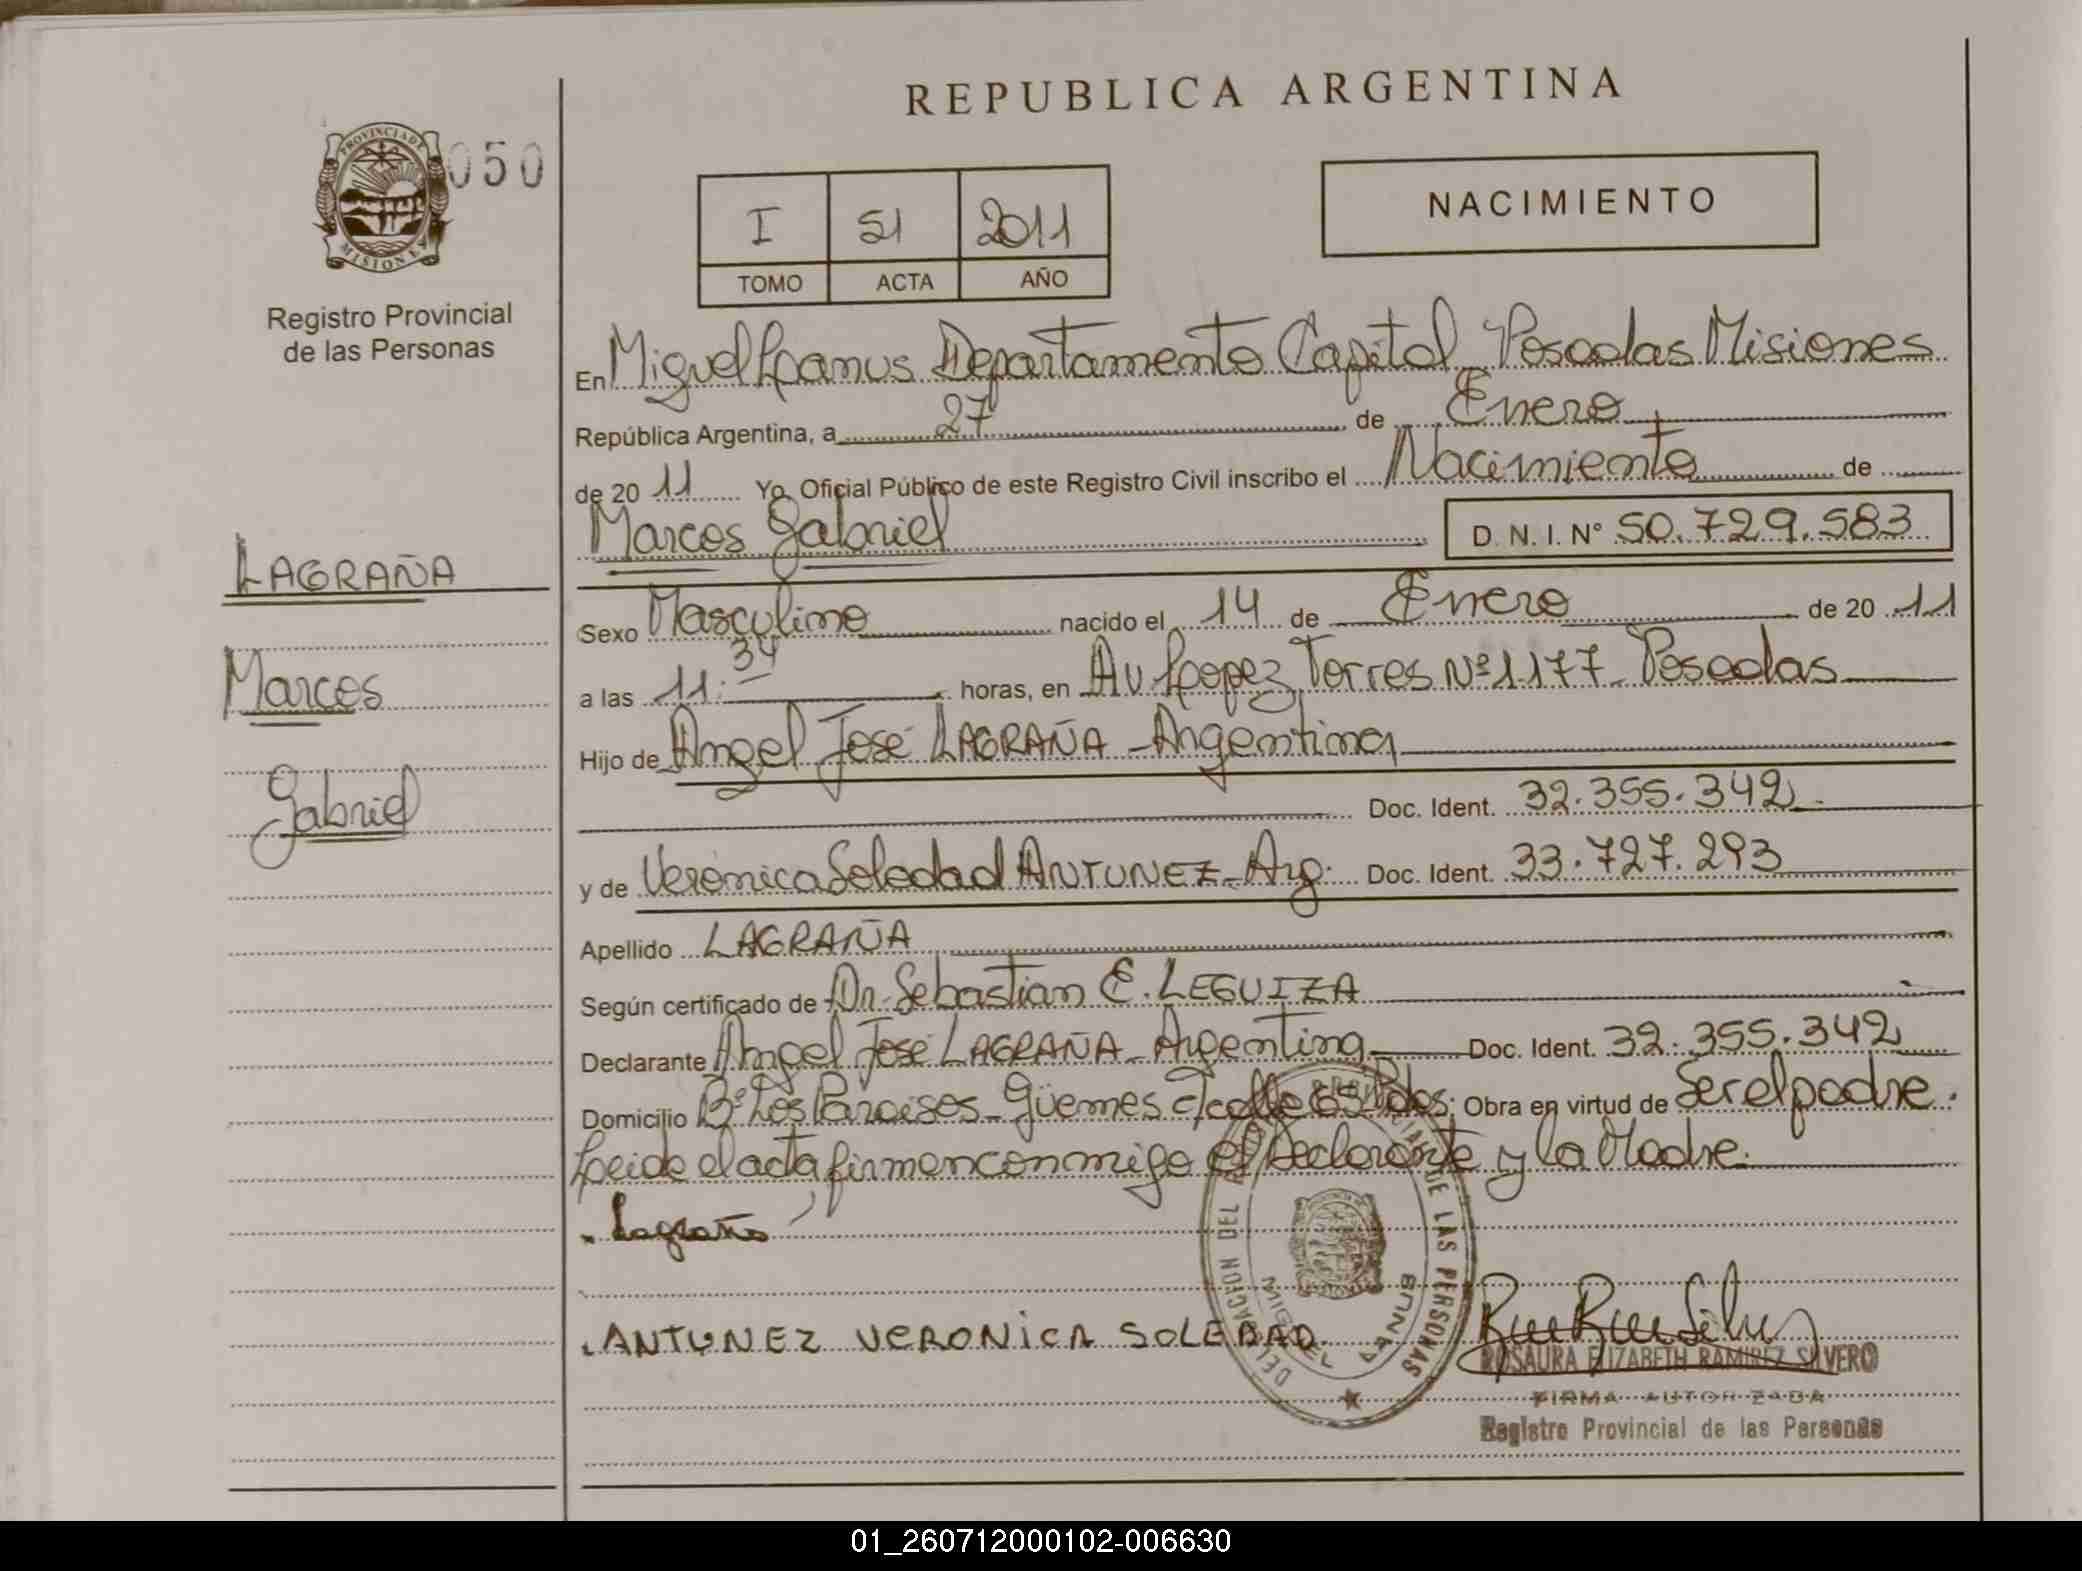 REPUBLICA ARGENTINA
PROVINCIA DE
MISIONES
050
Registro Provincial
de las Personas
I 51 2011
TOMO ACTA AÑO
NACIMIENTO
En Miguel Lanus Departamento Capital Posadas Misiones
República Argentina, a 27 de Enero
de 20 11 Yo, Oficial Público de este Registro Civil inscribo el Nacimiento de
Marcos Gabriel D. N. I. N° 50.729.583
LAGRAÑA
Marcos
Gabriel
Sexo Masculino nacido el 14 de Enero de 20 11
a las 11:34 horas, en Av Lopez Torres Nº 1177 Posadas
Hijo de Angel José LAGRAÑA - Argentina
Doc. Ident. 32.355.342
y de Verónica Soledad ANTUNEZ - Arg. Doc. Ident. 33.727.293
Apellido LAGRAÑA
Según certificado de Dr. Sebastian E. LEGUIZA
Declarante Angel José LAGRAÑA - Argentina Doc. Ident. 32.355.342
Domicilio Bº Los Paraises - Güemes c/calle 65 Pdas; Obra en virtud de Ser el padre.
Leida el acta firman conmigo el Declarante y la Madre.
Lagraña
DELEGACION DEL DE LAS PERSONAS
MIGUEL LANUS
ANTUNEZ VERONICA SOLEDAD
ROSAURA ELIZABETH RAMIREZ SILVERO
FIRMA AUTORIZADA
Registro Provincial de las Personas
01_260712000102-006630